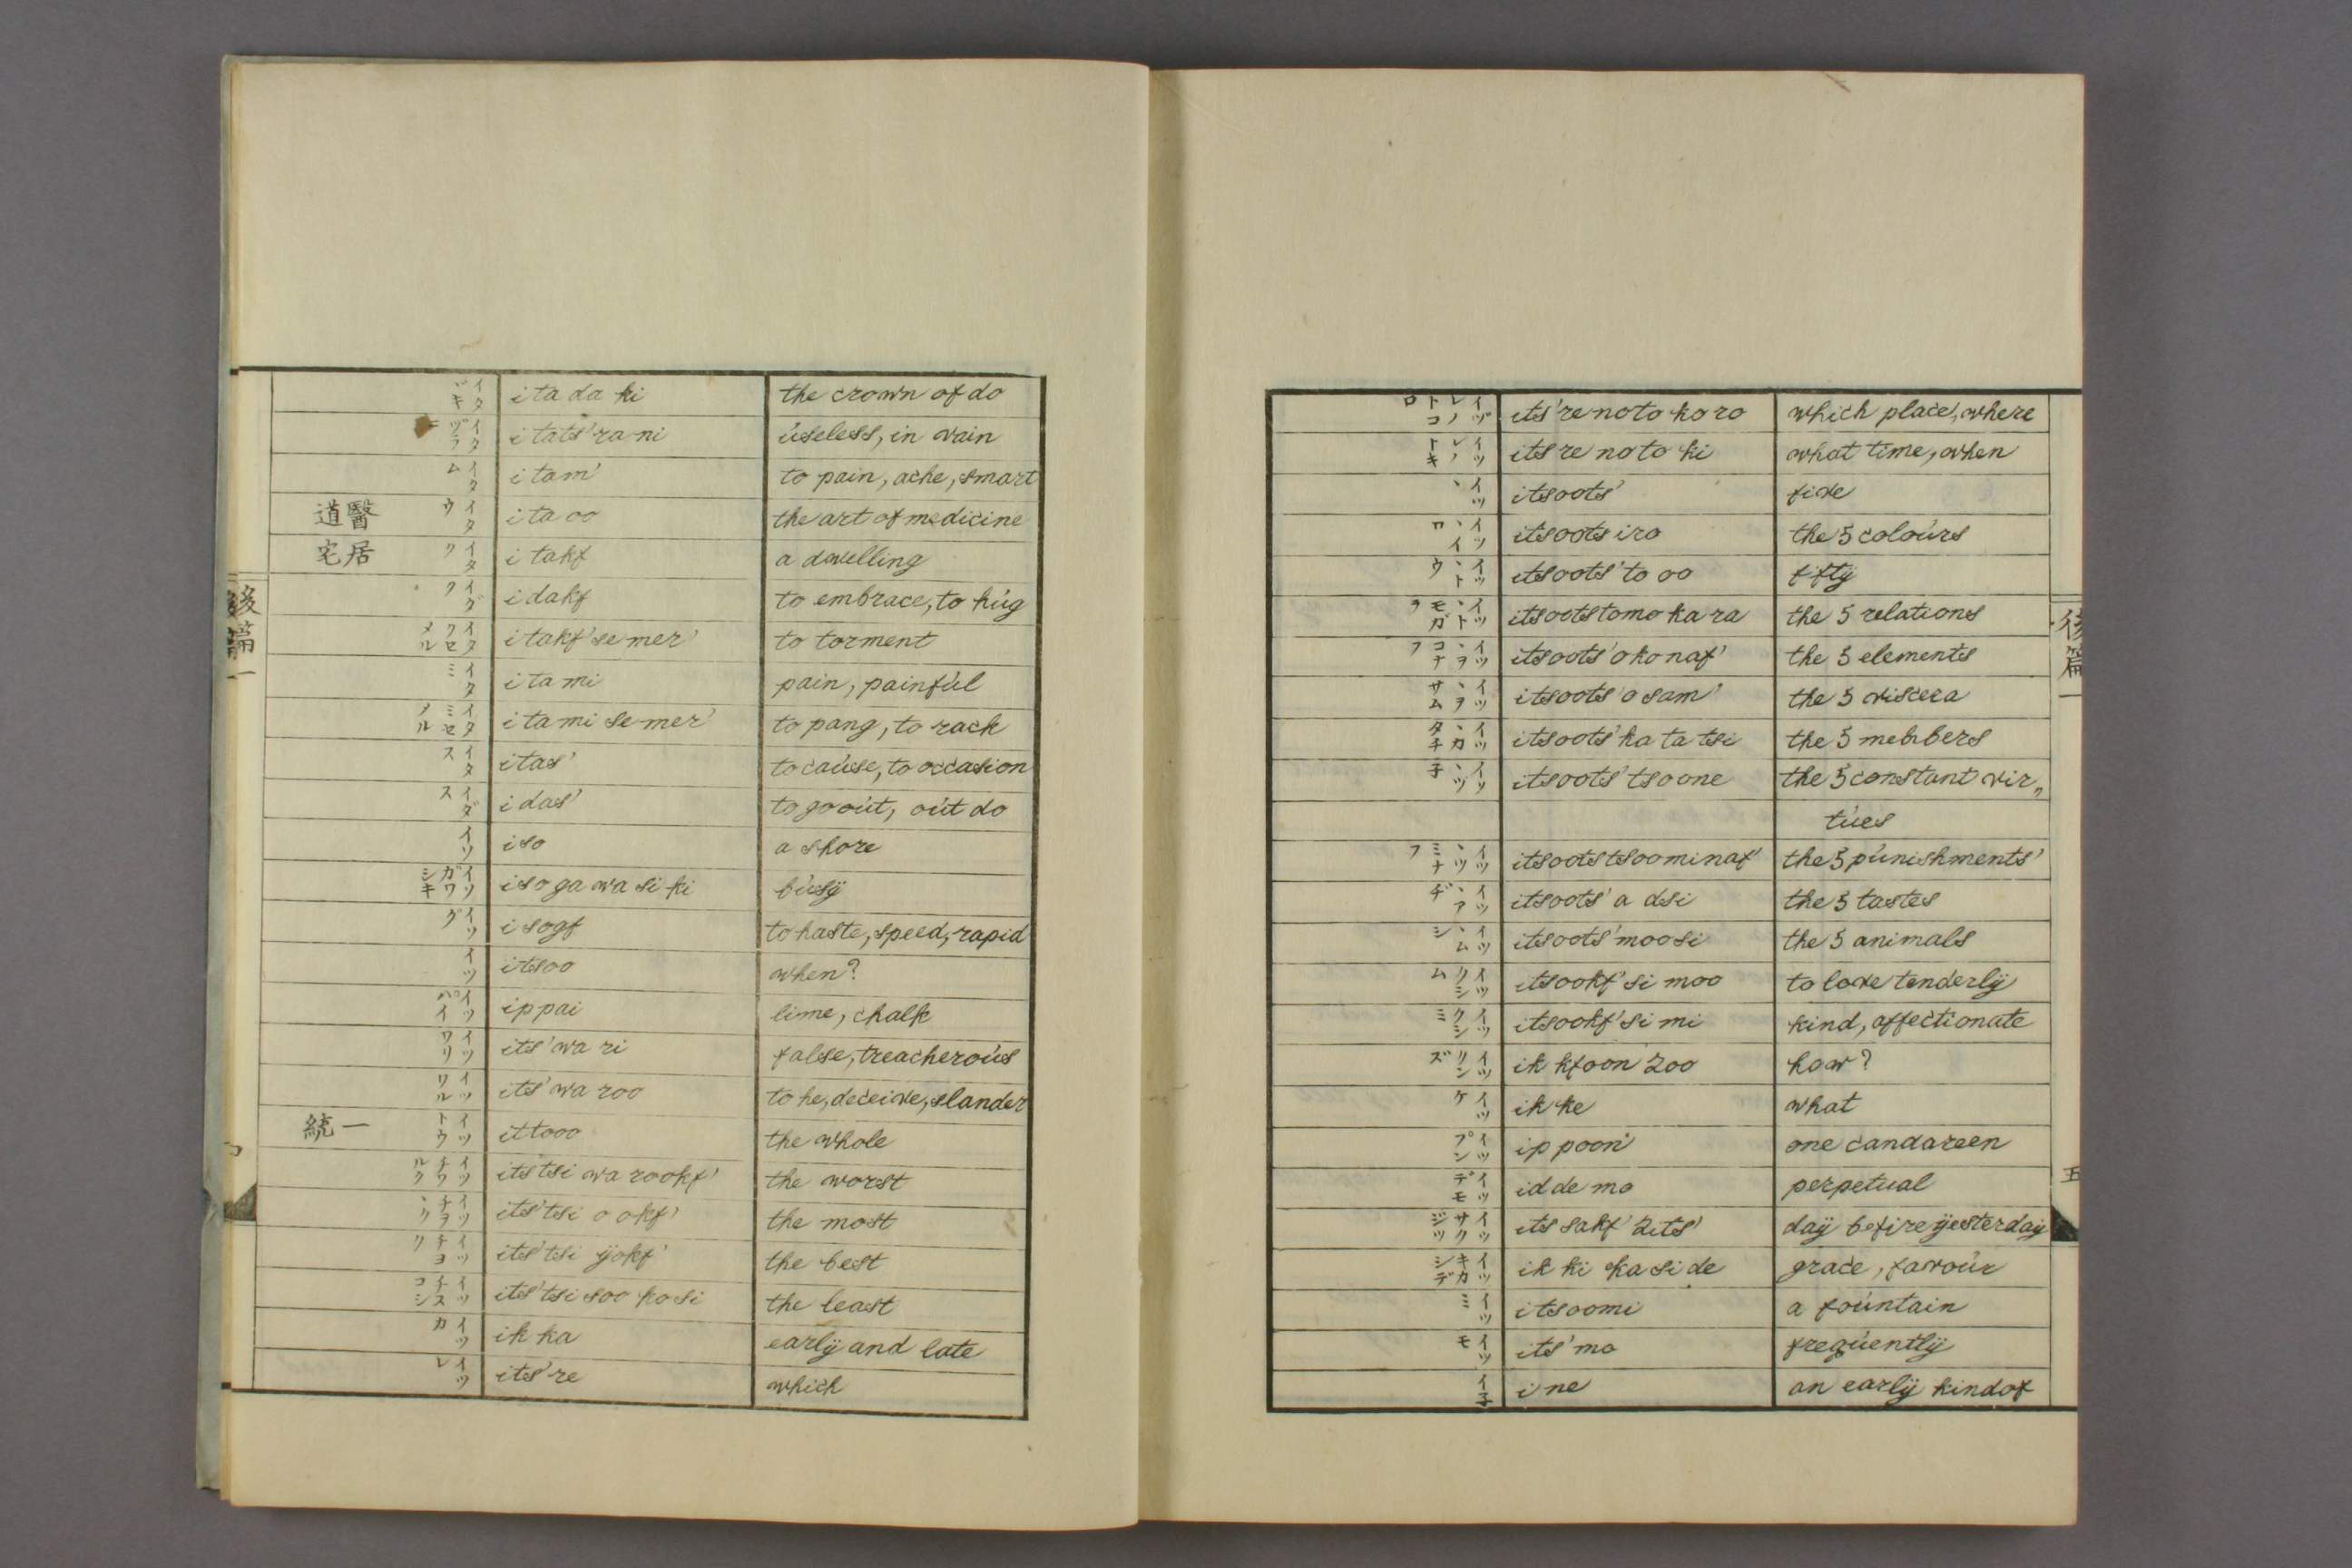 イタヾキ i ta da ki the crown of do
イタヅラニ i tats' ra ni useless, in vain
イタム i tam' to pain, ache, smart
醫道 イタウ i ta oo the art of medicine
居宅 イタク i takf a dwelling
イダク i dakf to embrace, to hug
イタクセメル i takf' se mer' to torment
イタミ i ta mi pain, painful
イタミセメル i ta mi se mer' to pang, to rack
イタス i tas' to cause, to occasion
イダス i das' to go out, out do
イソ i so a shore
イソガワシキ i so ga wa si ki busÿ
イソグ i sogf to haste, speed, rapid
イツ itsoo when?
イッパイ ip pai lime, chalk
イツワリ its' wa ri false, treacherous
イツワル its' wa roo to he, deceive, slander
一統 イットウ it tooo the whole
イツチワルク its tsi wa rookf' the worst
イツチヲヽク its' tsi o okf' the most
イツチヨク its' tsi ÿokf' the best
イツチスコシ its' tsi soo ko si the least
イッカ ik ka earlÿ and late
イツレ its' re which
後篇一
イヅレノトコロ its' re no to ko ro which place, where
イツレノトキ its re no to ki what time, when
イツヽ itsoots' five
イツヽイロ itsoots iro the 5 colours
イツヽトウ itsoots' to oo fiftÿ
イツヽトモガラ itsoots tomo ka ra the 5 relations
イツヽヲコナフ itsoots' o ko naf' the 5 elements
イツヽヲサム itsoots' o sam' the 5 viscera
イツヽカタチ itsoots' ka ta tsi the 5 members
イツヽツ子 itsoots' tsoone the 5 constant vir„
tues
イツヽツミナフ itsoots tsoominaf' the 5 punishments'
イツヽアヂ itsoots' a dsi the 5 tastes
イツヽムシ itsoots' moosi the 5 animals
イツクシム itsookf' si moo to love tenderlÿ
イツクシミ itsookf' si mi kind, affectionate
イックンズ ik kfoon' zoo how?
イッケ ik ke what
イップン ip poon' one candareen
イツデモ id de mo perpetual
イツサクジツ its sakf' zits' daÿ befire ÿesterdaÿ
イッキカシデ ik ki ka si de grace, favour
イツミ itsoomi a fountain
イツモ its' mo frequentlÿ
イ子 i ne an earlÿ kind of
後篇一
五